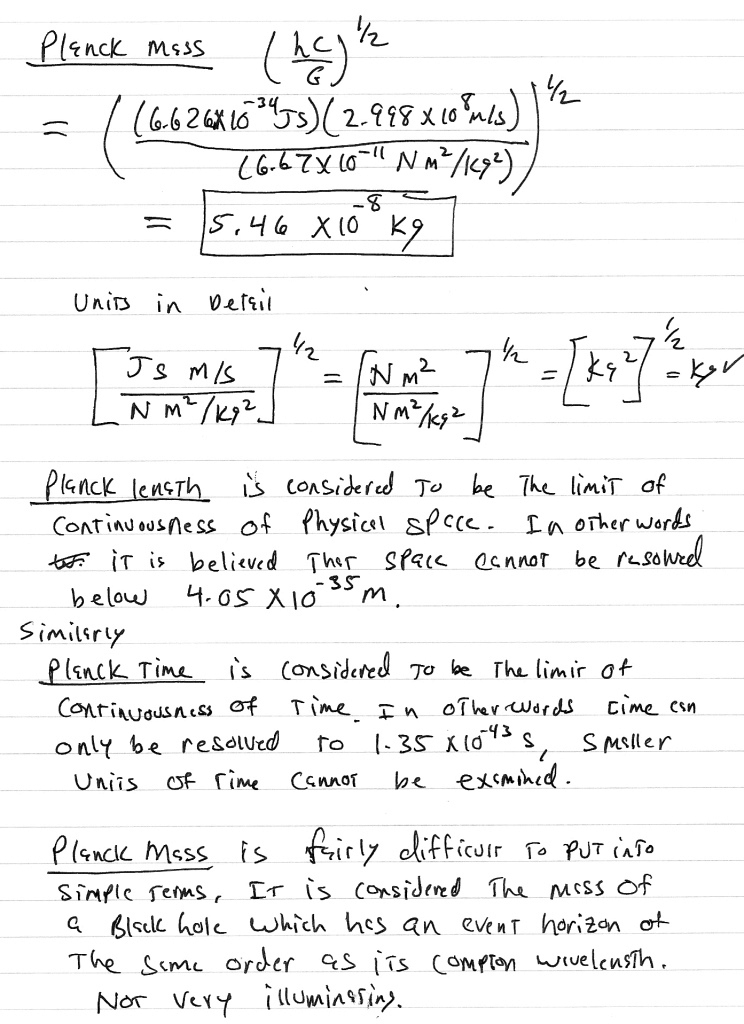 Planck Mass (hc/G)^1/2
= ((6.626X10^-34 Js)(2.998 X 10^8 m/s) / (6.67X10^-11 N m²/kg²))^1/2
= 5.46 X10^-8 kg
Units in Detail
[J s m/s / N m²/kg²]^1/2 = [N m² / N m²/kg²]^1/2 = [kg²]^1/2 = kg ✓
Planck length is considered to be the limit of
continuousness of Physical space. In other words
it is believed that space cannot be resolved
below 4.05 X10^-35 m.
Similarly
Planck Time is considered to be the limit of
continuousness of Time. In other words time can
only be resolved to 1.35 X10^-43 s, smaller
Units of time cannot be examined.
Planck Mass is fairly difficult to put into
simple terms, It is considered the mass of
a Black hole which has an event horizon of
the same order as its compton wavelength.
Not very illuminating.